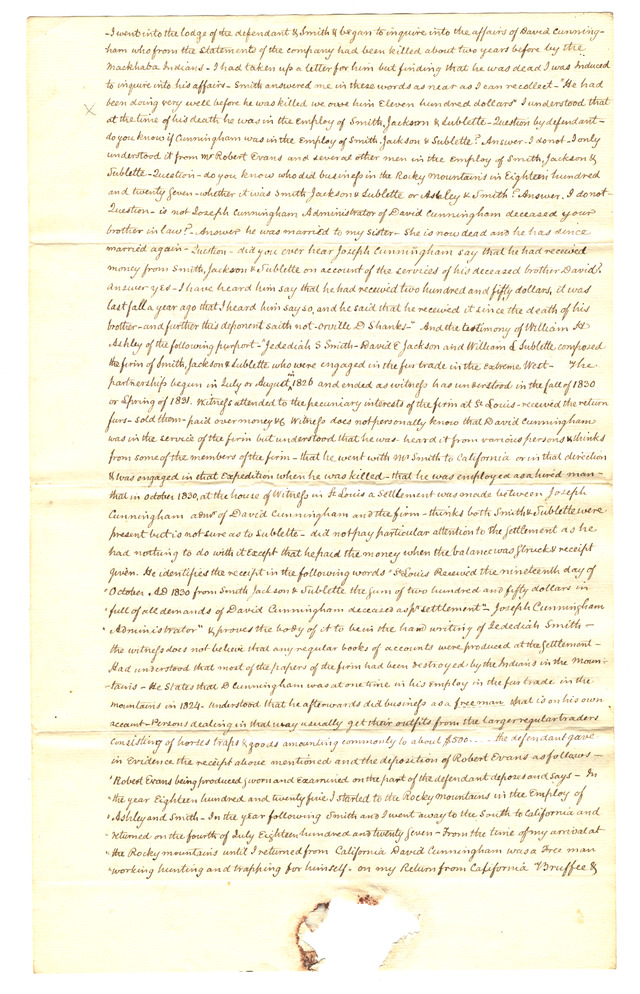 -I went into the lodge of the defendant & Smith & began to inquire into the affairs of David Cunning-
ham who from the statements of the company had been killed about two years before by the
Mackhaba Indians - I had taken up a letter for him but finding that he was dead I was Induced
to inquire into his affairs - Smith answered me in these words as near as I can recollect - "He had
been doing very well before he was killed we owe him Eleven hundred dollars" I understood that
at the time of his death he was in the Employ of Smith, Jackson & Sublette - Question by defendant -
do you know if Cunningham was in the Employ of Smith Jackson & Sublette? Answer - I do not - I only
understood it from Mr Robert Evans and several other men in the Employ of Smith, Jackson &
Sublette - Question - do you know who did business in the Rocky Mountains in Eighteen hundred
and twenty seven - whether it was Smith Jackson & Sublette or Ashley & Smith? Answer. I do not -
Question - is not Joseph Cunningham Administrator of David Cunningham deceased your
brother in law? - Answer he was married to my sister - She is now dead and he has since
married again - Question - did you ever hear Joseph Cunningham say that he had received
money from Smith, Jackson & Sublette on account of the services of his deceased brother David?
Answer yes - I have heard him say that he had received two hundred and fifty dollars, it was
last fall a year ago that I heard him say so, and he said that he received it since the death of his
brother - and further this deponent saith not - Orville D Shanks - " And the testimony of William H
Ashley of the following purport - "Jedediah S Smith - David E Jackson and William L Sublette composed
the firm of Smith, Jackson & Sublette who were engaged in the fur trade in the extreme West - The
partnership begun in July or August in 1826 and ended as witness has understood in the fall of 1830
or Spring of 1831. Witness attended to the pecuniary interests of the firm at St Louis - received the return
furs - sold them - paid over money &c Witness does not personally know that David Cunningham
was in the service of the firm but understood that he was - heard it from various persons & thinks
from some of the members of the firm - that he went with Mr Smith to California or in that direction
& was engaged in that Expedition when he was killed - that he was employed as a hired man -
that in October 1830, at the house of Witness in St Louis a Settlement was made between Joseph
Cunningham admr of David Cunningham and the firm - thinks both Smith & Sublette were
present but is not sure as to Sublette - did not pay particular attention to the Settlement as he
had nothing to do with it Except that he paid the money when the balance was Struck & receipt
given. He identifies the receipt in the following words "St Louis Received the nineteenth day of
"October AD 1830 from Smith Jackson & Sublette the sum of two hundred and fifty dollars in
"full of all demands of David Cunningham deceased as pr settlement - Joseph Cunningham
"Administrator" & proves the body of it to be in the hand writing of Jedediah Smith -
the witness does not believe that any regular books of accounts were produced at the Settlement -
Had understood that most of the papers of the firm had been destroyed by the Indians in the Moun-
tains - He States that D Cunningham was at one time in his Employ in the fur trade in the
mountains in 1824. understood that he afterwards did business as a free man that is on his own
account - Persons dealing in that way usually get their outfits from the larger regular traders
consisting of horses traps & goods amounting commonly to about $500 .... the defendant gave
in Evidence the receipt above mentioned and the deposition of Robert Evans as follows -
"Robert Evans being produced, sworn and Examined on the part of the defendant deposes and says - In
"the year Eighteen hundred and twenty five I started to the Rocky Mountains in the Employ of
"Ashley and Smith - In the year following Smith and I went away to the South to California and
"returned on the fourth of July Eighteen hundred and twenty seven - From the time of my arrival at
"the Rocky mountains until I returned from California David Cunningham was a Free man
"working hunting and trapping for himself. on my Return from California Bruffee &